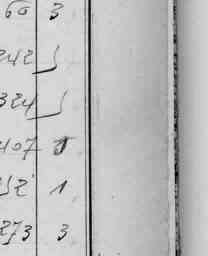 60 3
242
324
407 1
52 1
273 3